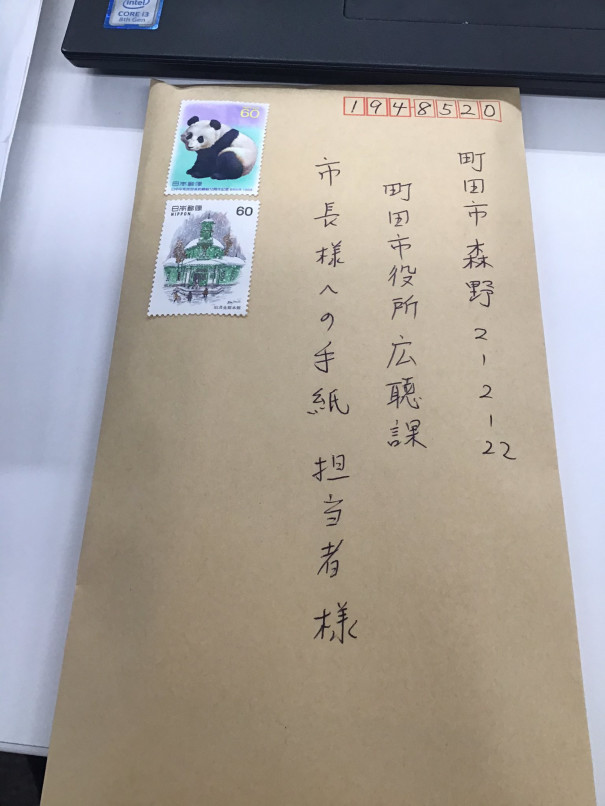 intel
CORE i3
8th Gen
1948520
町田市森野2-2-22
町田市役所広聴課
市長様への手紙 担当者様
60
日本郵便
日本郵便
NIPPON
60